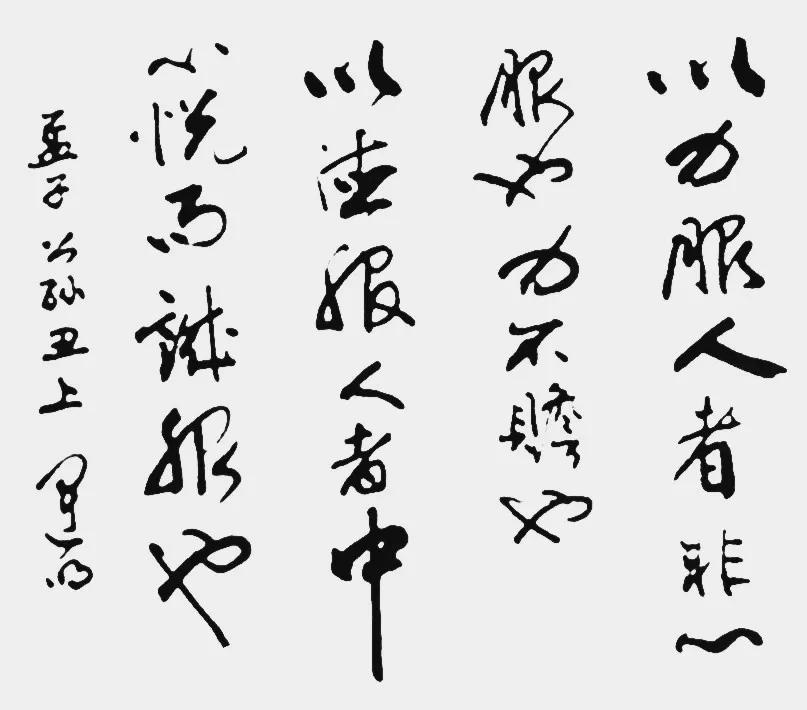 以力服人者非心
服也力不赡也
以德服人者中
心悦而诚服也
孟子公孙丑上